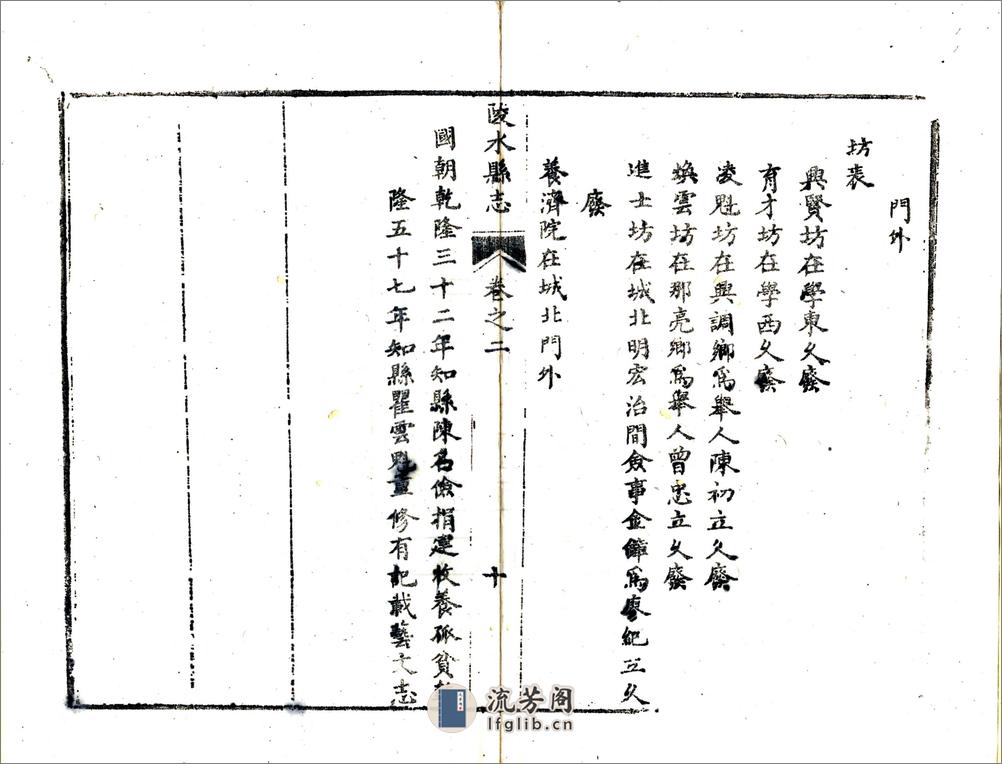 門外
坊表
興賢坊在學東久廢
育才坊在學西久廢
凌魁坊在興調鄉爲舉人陳初立久廢
煥雲坊在那亮鄉爲舉人曾忠立久廢
進士坊在城北明宏治間僉事金鏛爲廖紀立久
廢
養濟院在城北門外
陵水縣志
卷之二
十
國朝乾隆三十二年知縣陳名儉捐建收養孤貧
隆五十七年知縣瞿雲魁重修有記載藝文志
流芳阁
lfglib.cn